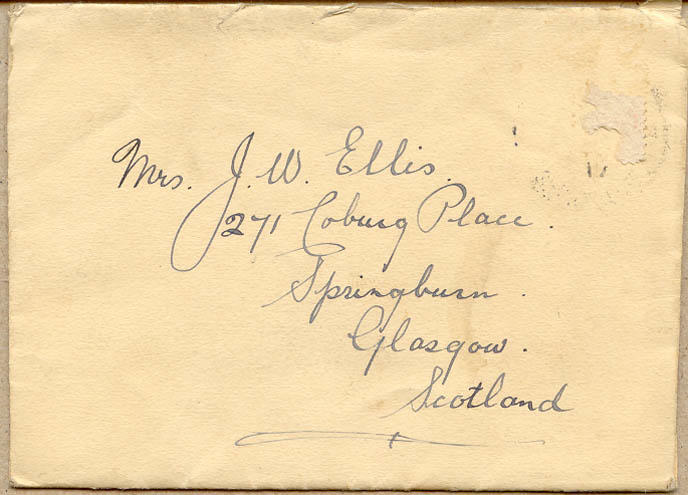 Mrs. J. W. Ellis.
271 Coburg Place.
Springburn.
Glasgow.
Scotland